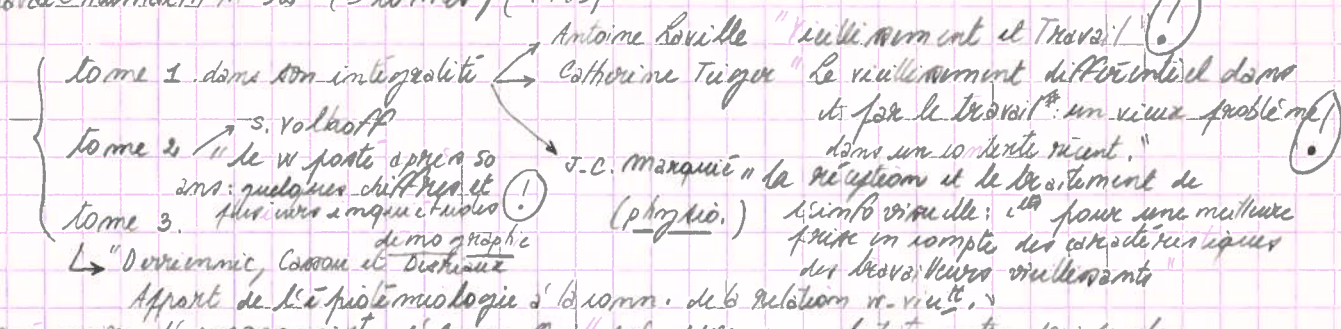 Antoine Laville "Vieillissement et Travail" !
tome 1 dans son intégralité
Catherine Teiger "Le vieillissement différentiel dans
et par le travail : un vieux problème
dans un contexte récent." !
tome 2
S. Volkoff
"le w posté après 50
ans : quelques chiffres et
plusieurs inquiétudes !
J.C. Marquié "La réception et le traitement de
(physio.) l'info visuelle : pour une meilleure
prise en compte des caractéristiques
des travailleurs vieillissants"
tome 3.
démographie
"Derriennic, Cassou et
Apport de l'épidémiologie à la conn. de la relation w-vieilt.